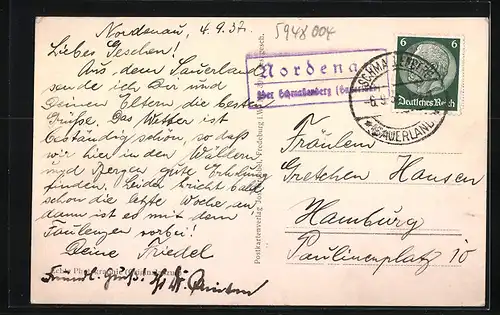 Nordenau, 4.9.37.
Liebes Geschen!
Aus dem Sauerland
sende ich Dir und
Deinen Eltern die besten
Grüße. Das Wetter ist
beständig schön, so daß
wir hier in den Wäldern
und Bergen gute Erholung
finden. Leider bricht bald
schon die letzte Woche an
dann ist es mit dem
Faulenzen vorbei!
Deine Friedel
594X004
Nordenau
über Schmallenberg (Sauerland)
Postkartenverlag Fredeburg
SCHMALLENBERG
SAUERLAND
6 6
Deutsches Reich
Fräulein
Gretchen Hansen
Hamburg
Paulinenplatz 10